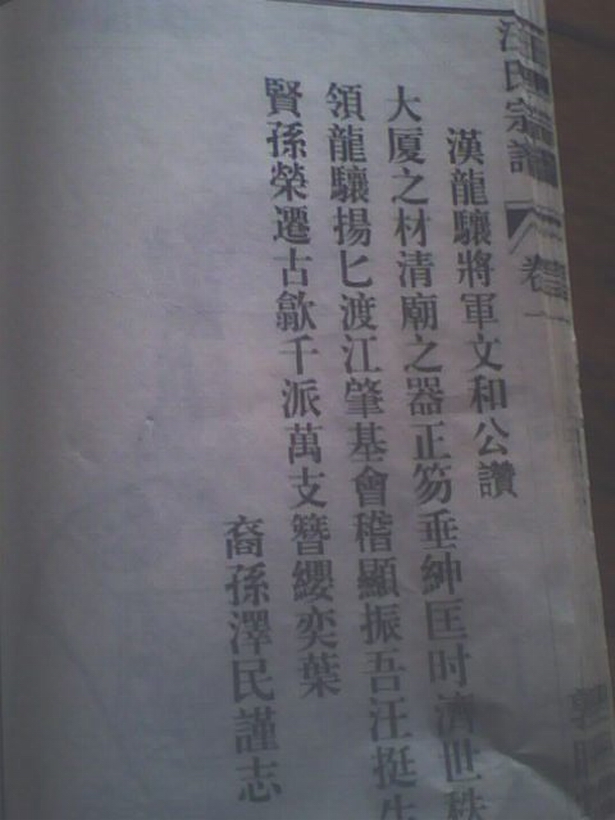 汪氏宗譜 卷一
漢龍驤將軍文和公讚
大厦之材清廟之器正笏垂紳匡时濟世秩
領龍驤揚匕渡江肇基會稽顯振吾汪挺生
賢孫榮遷古歙千派萬支簪纓奕葉
裔孫澤民謹志